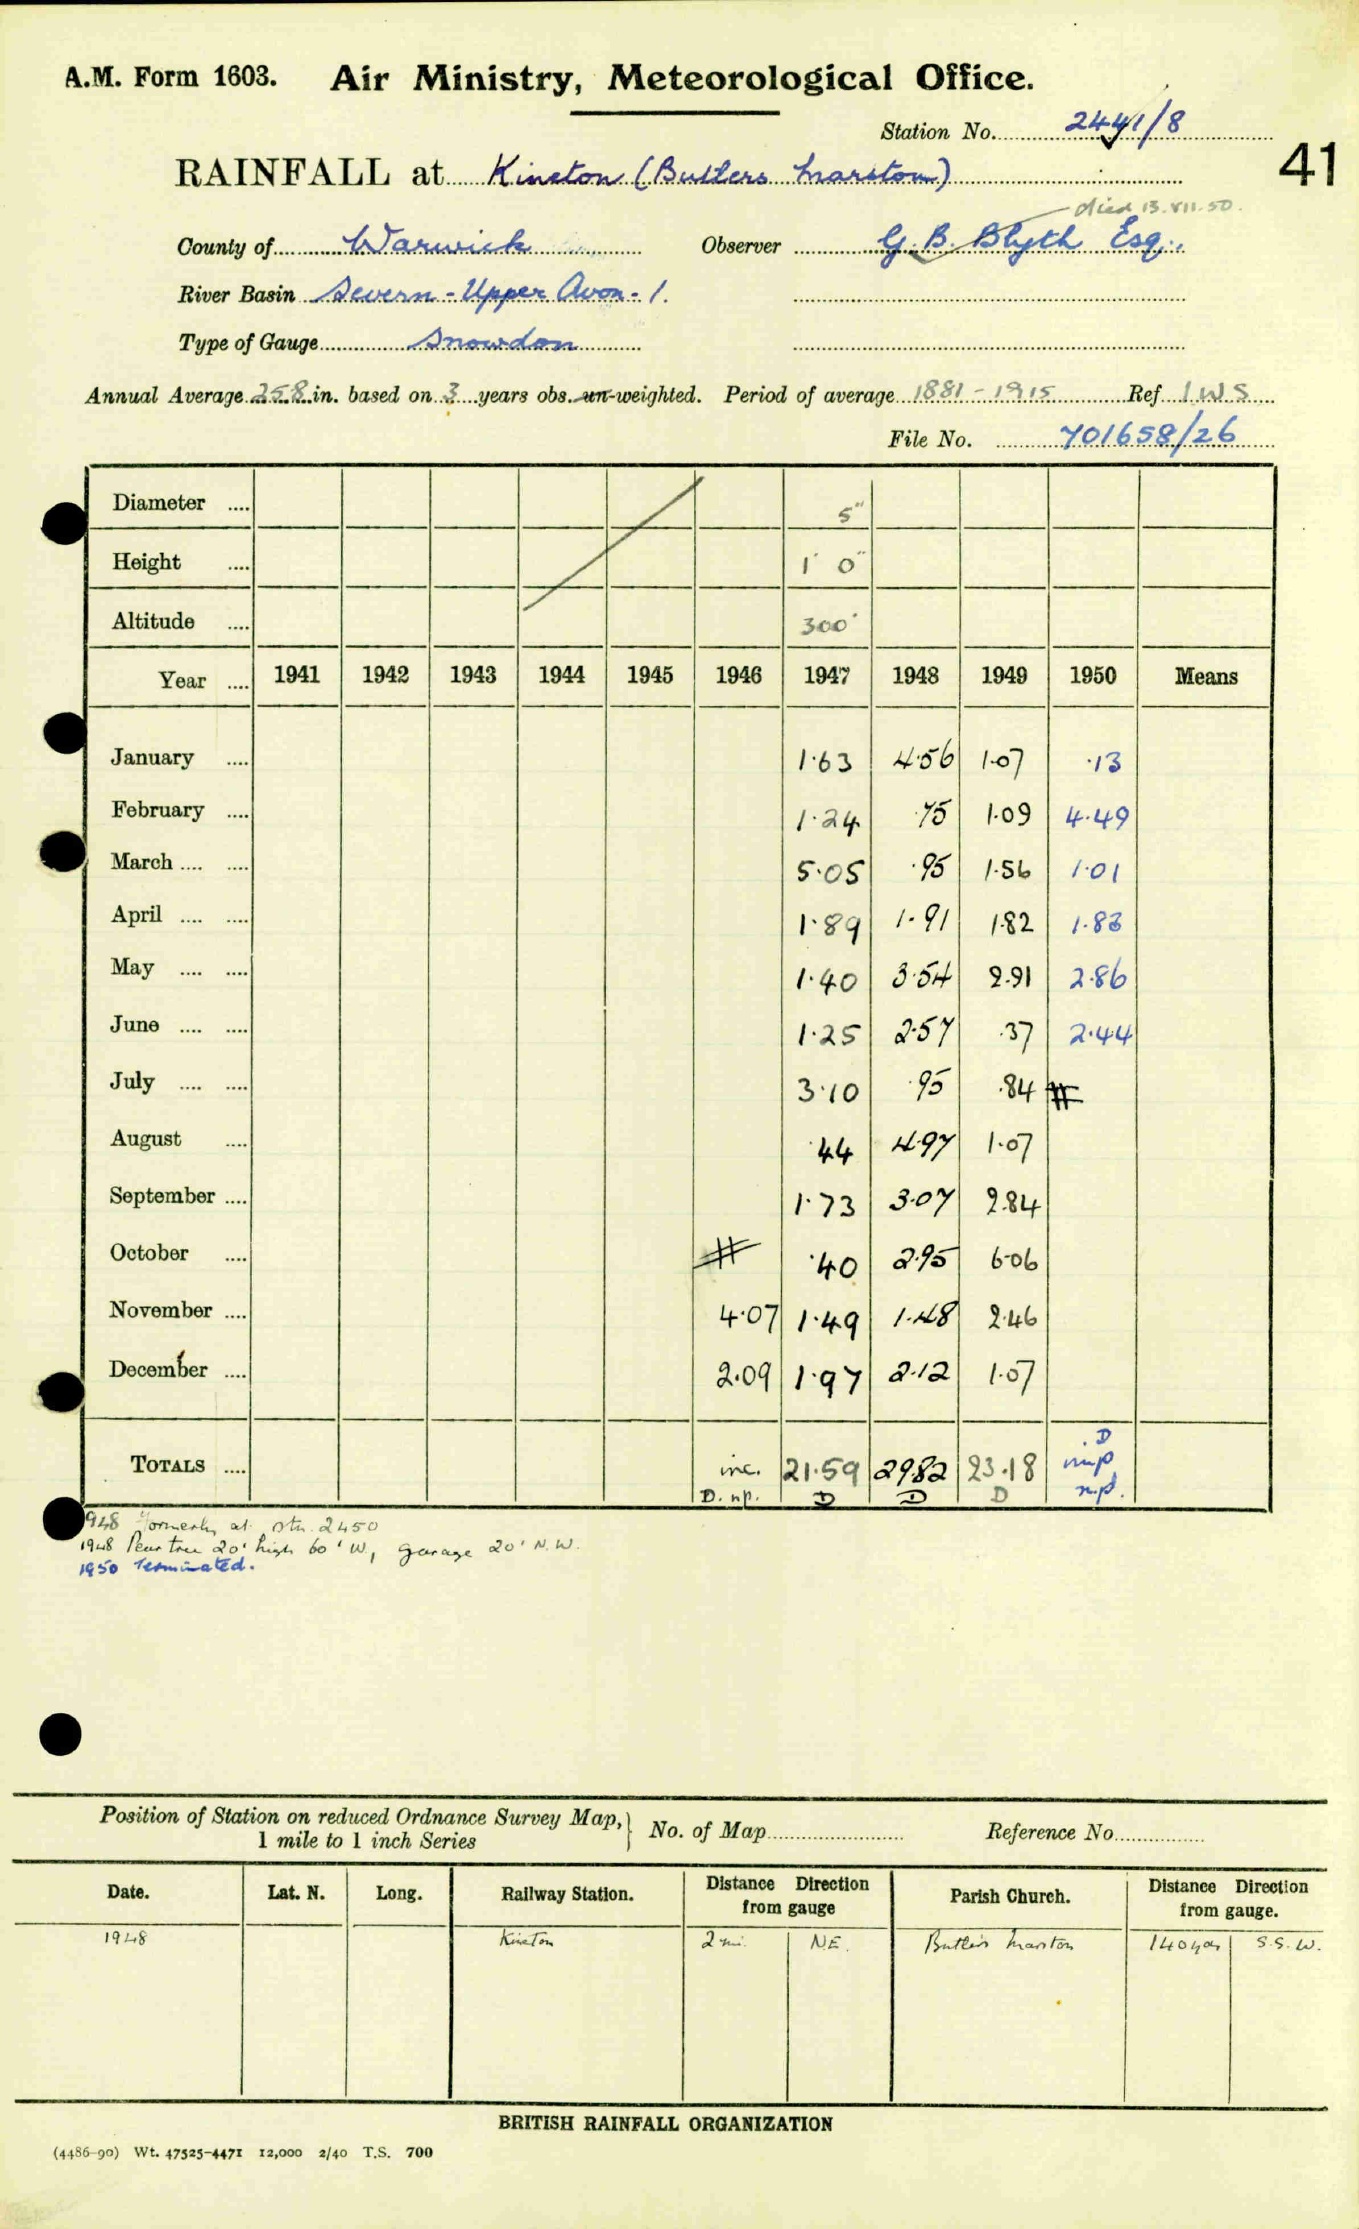 A.M. Form 1603. Air Ministry, Meteorological Office.
Station No. 2441/8
41
RAINFALL at Kineton (Butlers Marston)
died 13.VII.50.
County of Warwick Observer G. B. Blyth Esq.,
River Basin Severn - Upper Avon - 1.
Type of Gauge Snowdon
Annual Average 25.8 in. based on 3 years obs. un-weighted. Period of average 1881 - 1915 Ref I W S
File No. 701658/26
Diameter .... 5"
Height .... 1' 0"
Altitude .... 300'
Year .... 1941 1942 1943 1944 1945 1946 1947 1948 1949 1950 Means
January .... 1.63 4.56 1.07 .13
February .... 1.24 .75 1.09 4.49
March .... .... 5.05 .95 1.56 1.01
April .... .... 1.89 1.91 1.82 1.83
May .... .... 1.40 3.54 2.91 2.86
June .... .... 1.25 2.57 .37 2.44
July .... .... 3.10 .95 .84
August .... .44 4.97 1.07
September .... 1.73 3.07 2.84
October .... .40 2.95 6.06
November .... 4.07 1.49 1.48 2.46
December .... 2.09 1.97 2.12 1.07
TOTALS .... inc. 21.59 29.82 23.18 D inp
D. np. D D D n.p.
1948 Formerly at Stn. 2450
1948 Pear tree 20' high 60' W, garage 20' N.W.
1950 Terminated.
Position of Station on reduced Ordnance Survey Map, 1 mile to 1 inch Series } No. of Map Reference No.
Date. Lat. N. Long. Railway Station. Distance Direction from gauge Parish Church. Distance Direction from gauge.
1948 Kineton 2 mi. N.E. Butlers Marston 140 yds S.S.W.
BRITISH RAINFALL ORGANIZATION
(4486-90) Wt. 47525-4471 12,000 2/40 T.S. 700